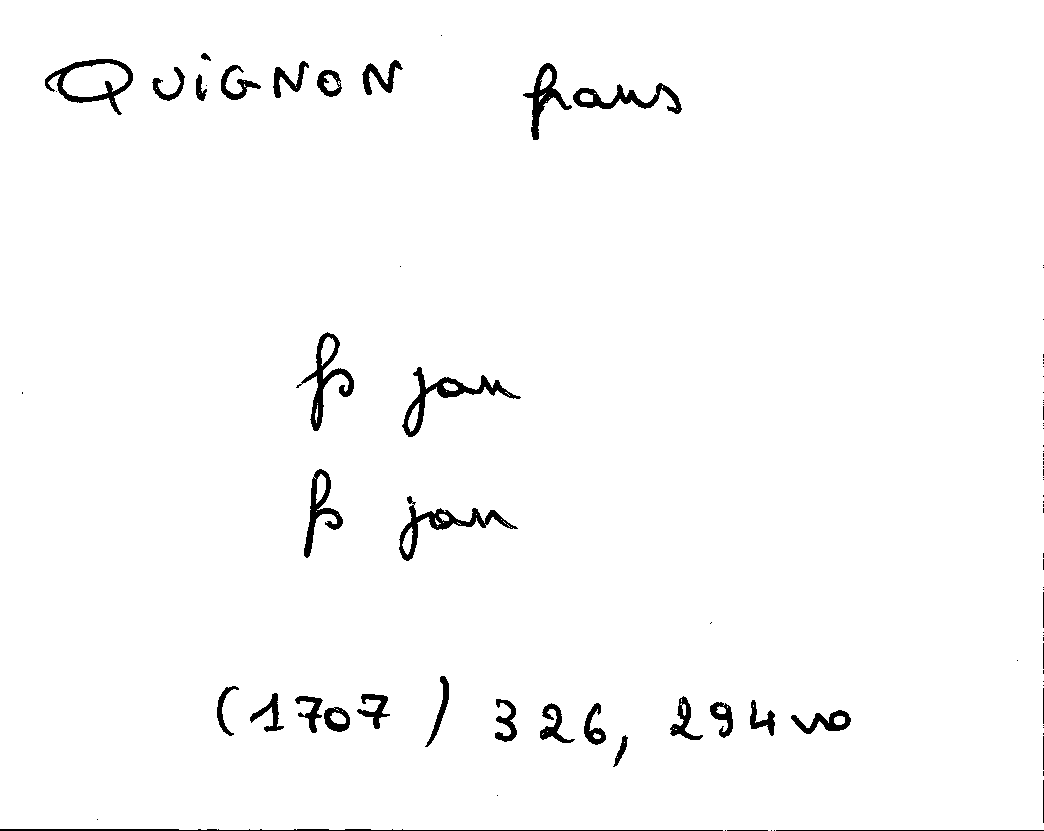 QUIGNON frans
fs jan
fs jan
(1707) 326, 294 vo